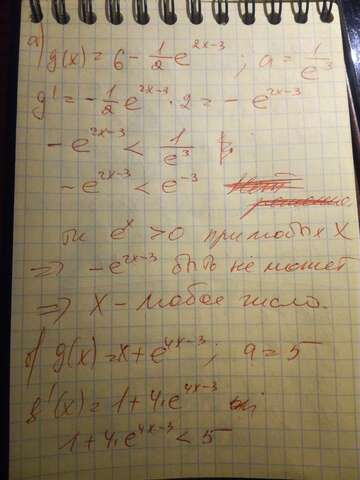 а) g(x) = 6 - 1/2 e^(2x-3) ; a = 1/e^3
g' = -1/2 e^(2x-3) · 2 = - e^(2x-3)
- e^(2x-3) < 1/e^3
- e^(2x-3) < e^(-3)
тк e^x > 0 при любых x
=> - e^(2x-3) быть не может
=> x - любое число.
б) g(x) = x + e^(4x-3) ; a = 5
g'(x) = 1 + 4·e^(4x-3)
1 + 4·e^(4x-3) < 5